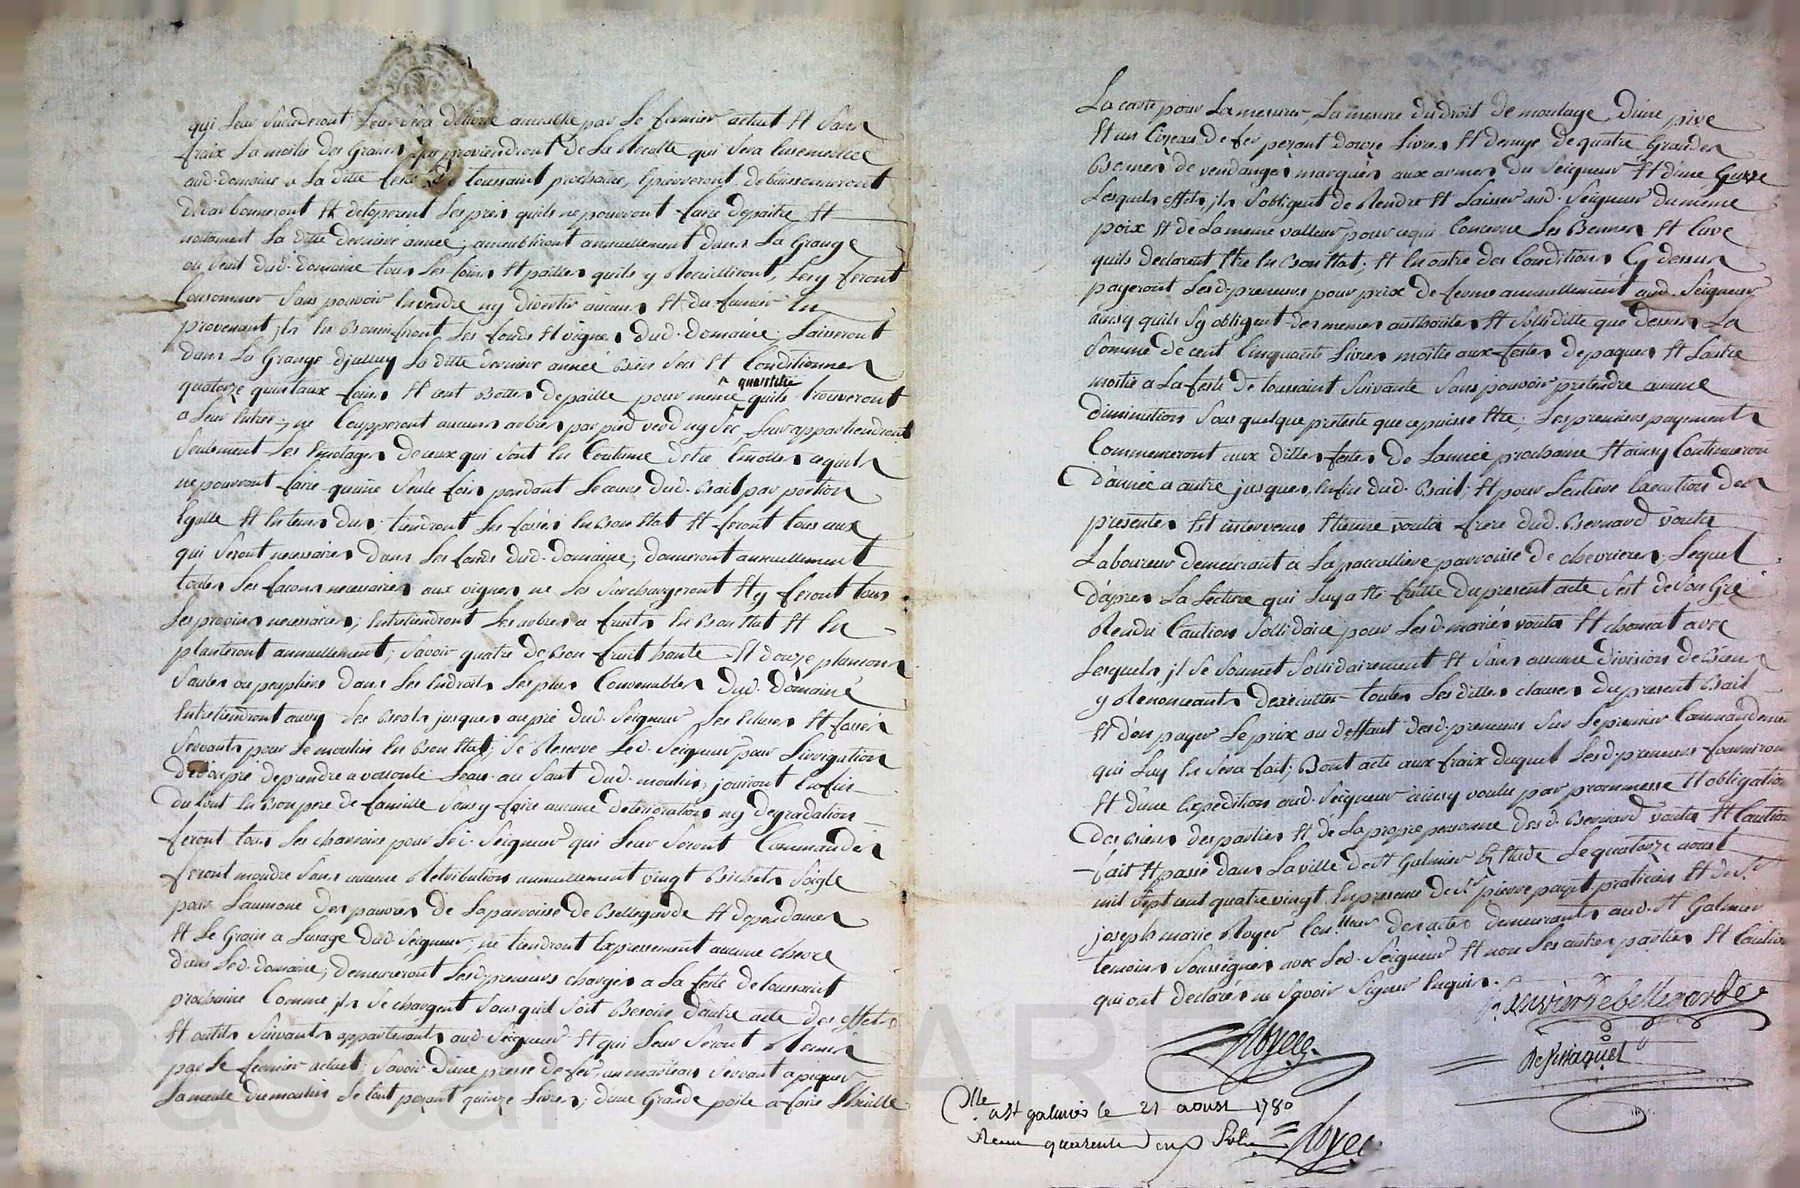 qui Leur Succederont Leur sera délivré annuelle par Le fermier actuel Et Sans
fraix La moitié des Grains qui proviendront de La Recolte qui Sera Ensemencée
aud. domaine a La ditte feste de toussaint prochaine, Epierreront, debuissonneront
Et detoperont Les prés quils ne pourront faire depaitre Et
notament La ditte derniere année, amenbleront annuellement dans La Grange
ou fenil dud. domaine tous Les foins Et pailles quils y Recuilliront, Les y feront
Consommer Sans pouvoir En vendre ny divertir aucuns Et du fumier En
provenant, jls En Bonniffront Les fonds Et vignes dud. domaine; Laisseront
dans La Grange La ditte derniere année Bien Secs Et Conditionnes
quatorze quintaux foins Et cent Bottes de paille pour meme quantité quils trouveront
a Leur Entrée, ne Coupperont aucuns arbres par pied verd ny Sec, Leur appartiendront
Seulement Les Emotages de ceux qui Sont En Coutume detre Emottes ce quils
ne pourront faire qu'une Seule fois pendant Le cours dud. Bail par portion
Egalle Et En tems du; tiendront Les fossés En Bon Etat Et feront tous ceux
qui Seront necessaires dans Les fonds dud. domaine; donneront annuellement
toutes Les facons necessaires aux vignes ne Les Surchargeront Et y feront tous
Les provins necessaires; Entretiendront Les arbres a fruits En Bon Etat Et En
planteront annuellement; Savoir quatre de Bon fruit hante Et douze plansons
Saules ou peupliers dans Les Endroits Les plus Convenables dud. domaine
Entretiendront aussy Les Beals jusques au pré dud. Seigneur Les Ecluses Et fossés
Servants pour Le moulin En Bon Etat; Se Reserve Led. Seigneur pour L'irrigation
de prendre a vollonté Leau au Saut dud. moulin; jouiront Enfin
du tout En Bon pere de famille Sans y faire aucune déterioration ny degradation
feront tous Les charrois pour Led. Seigneur qui Leur Seront Commandés
feront moudre Sans aucune Retribution annuellement vingt Bichets Seigle
pour Laumone des pauvres de La parroisse de Bellegarde Et dependances
Et Le Grain a Lusage dud. Seigneur, ne tiendront Expressement aucune chevre
dans Led. domaine; demeureront Lesd. preneurs chargés a La feste de toussaint
prochaine Comme jls Se chargent Sans quil Soit Besoins dautre acte des effets
Et outils Suivants appartenants aud. Seigneur Et qui Leur Seront Remis
par Le fermier actuel; Savoir d'une presse de fer, un marteau Servant a piquer
La meule du moulin Le tout pezant quinze Livres, d'une Grande poile a faire L'huille
La carte pour La mesure, La mesure du droit de moulage, d'une pive
Et un Cizeau de fer pezant douze Livres Et demye de quatre Grandes
Bennes de vendanges marquées aux armes du Seigneur Et d'une Cuve
Lesquels effets, jls S'obligent de Rendre Et Laisser aud. Seigneur du meme
poix Et de La meme valleur pour ce qui Concerne Les Bennes Et Cuve
quils declarent Etre En Bon Etat; Et En outre des Conditions Cy dessus
payeront Lesd. preneurs pour prix de ferme annuellement aud. Seigneur
ainsy quils Sy obligent des memes authorités Et Sollidité que dessus La
Somme de cent Cinquante Livres moitié aux festes de paques Et L'autre
moitié a La feste de toussaint Suivante Sans pouvoir pretendre aucune
diminution Sous quelque pretexte que ce puisse Etre; Les premiers payements
Commenceront aux dittes festes de L'année prochaine Et ainsy Continueront
d'année a autre jusques En fin dud. Bail; Et pour L'entiere Execution des
presentes Est intervenu Etienne voute frere dud. Bernard voute
Laboureur demeurant a La parroisse de chevrieres, Lequel
d'apres La Lecture qui Luy a Eté faitte du present acte S'est de Son Gré
Rendu Caution Sollidaire pour Lesd. mariés voute Et chomat avec
Lesquels jl Se Soumet Sollidairement Et Sans aucune division de Biens
y Renoncants d'executer toutes Les dittes clauses du present Bail
Et d'en payer Le prix au deffaut desd. preneurs Sur Le premier Commandement
qui Luy En Sera fait; Dont acte aux fraix duquel Lesd. preneurs fourniront
Et d'une Expedition aud. Seigneur ainsy voulu par prommesse Et obligation
des Biens des parties Et de La propre personne desd. Bernard voute Et Caution
fait Et passé dans La ville de St Galmier Etude Le quatorze aoust
mil Sept cent quatre vingt En presence de Sr pierre payet praticien Et de Sr
joseph marie Royer Con.lleur des actes demeurants aud. St Galmier
temoins Soussignés avec Led. Seigneur Et non Les autres parties Et Caution
qui ont declarés ne Savoir Signer Enquis.
de bellegarde
Royer
Clle a St galmier le 21 aoust 1780
Recu quarente deux Sols Royer
Pascal CHAR